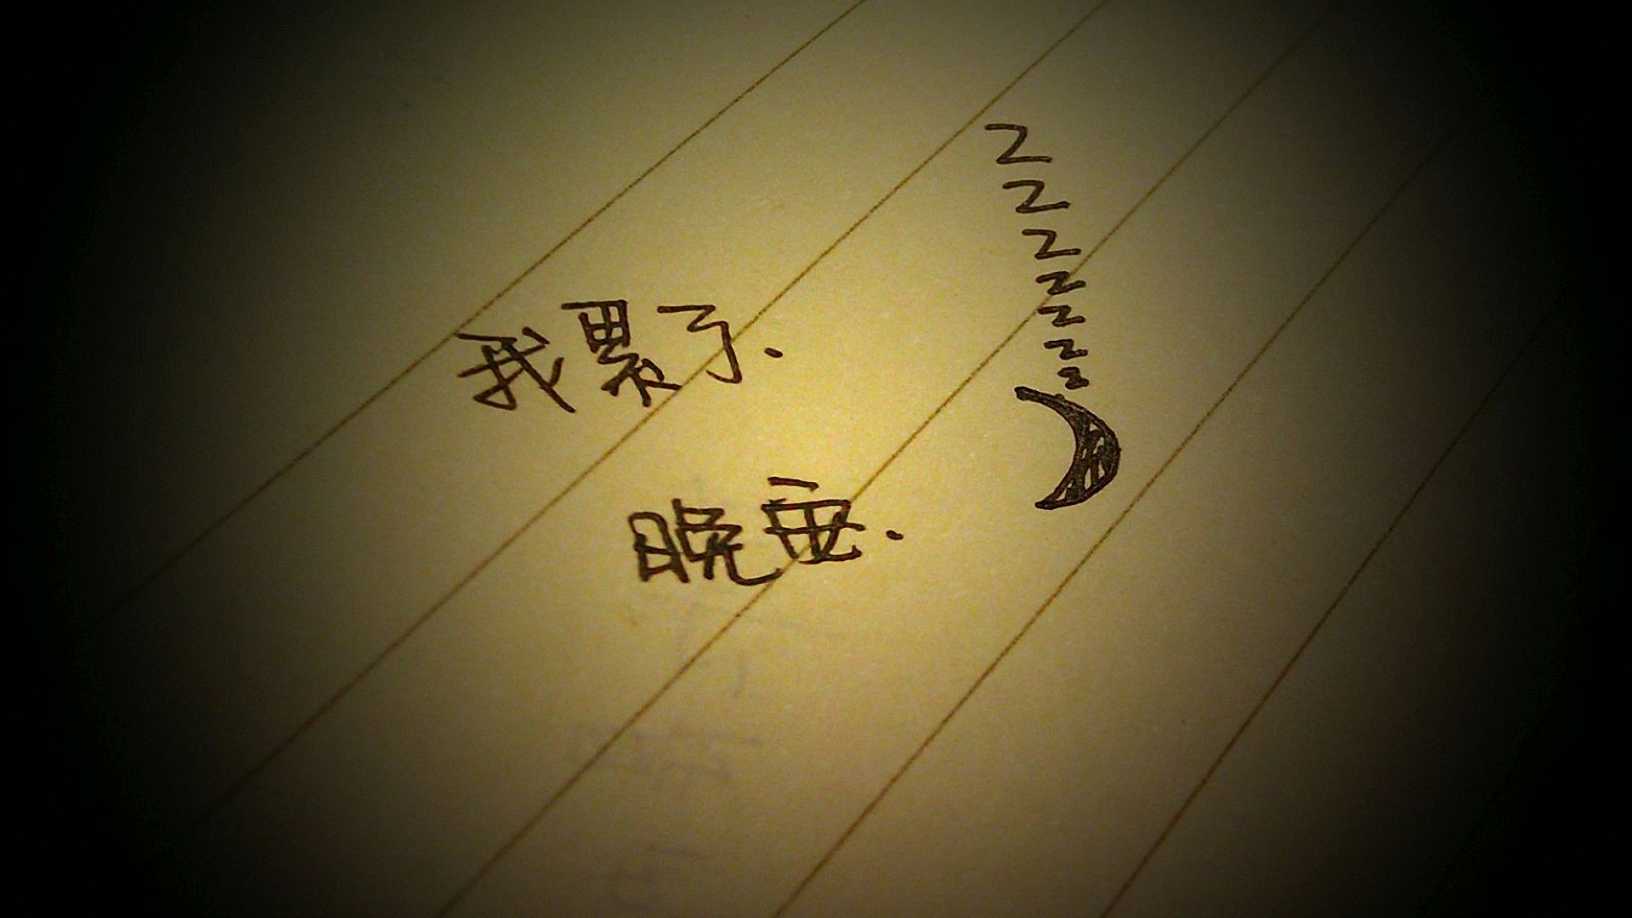 我累了.
晚安.
z
z
z
z
z
z
z
z